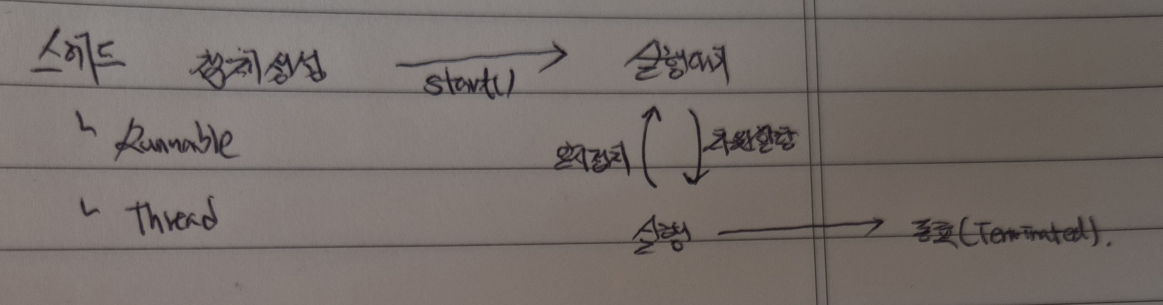 스레드 객체생성 start() 실행대기
ㄴ Runnable 일시정지 자원할당
ㄴ Thread 실행 종료(Terminated).